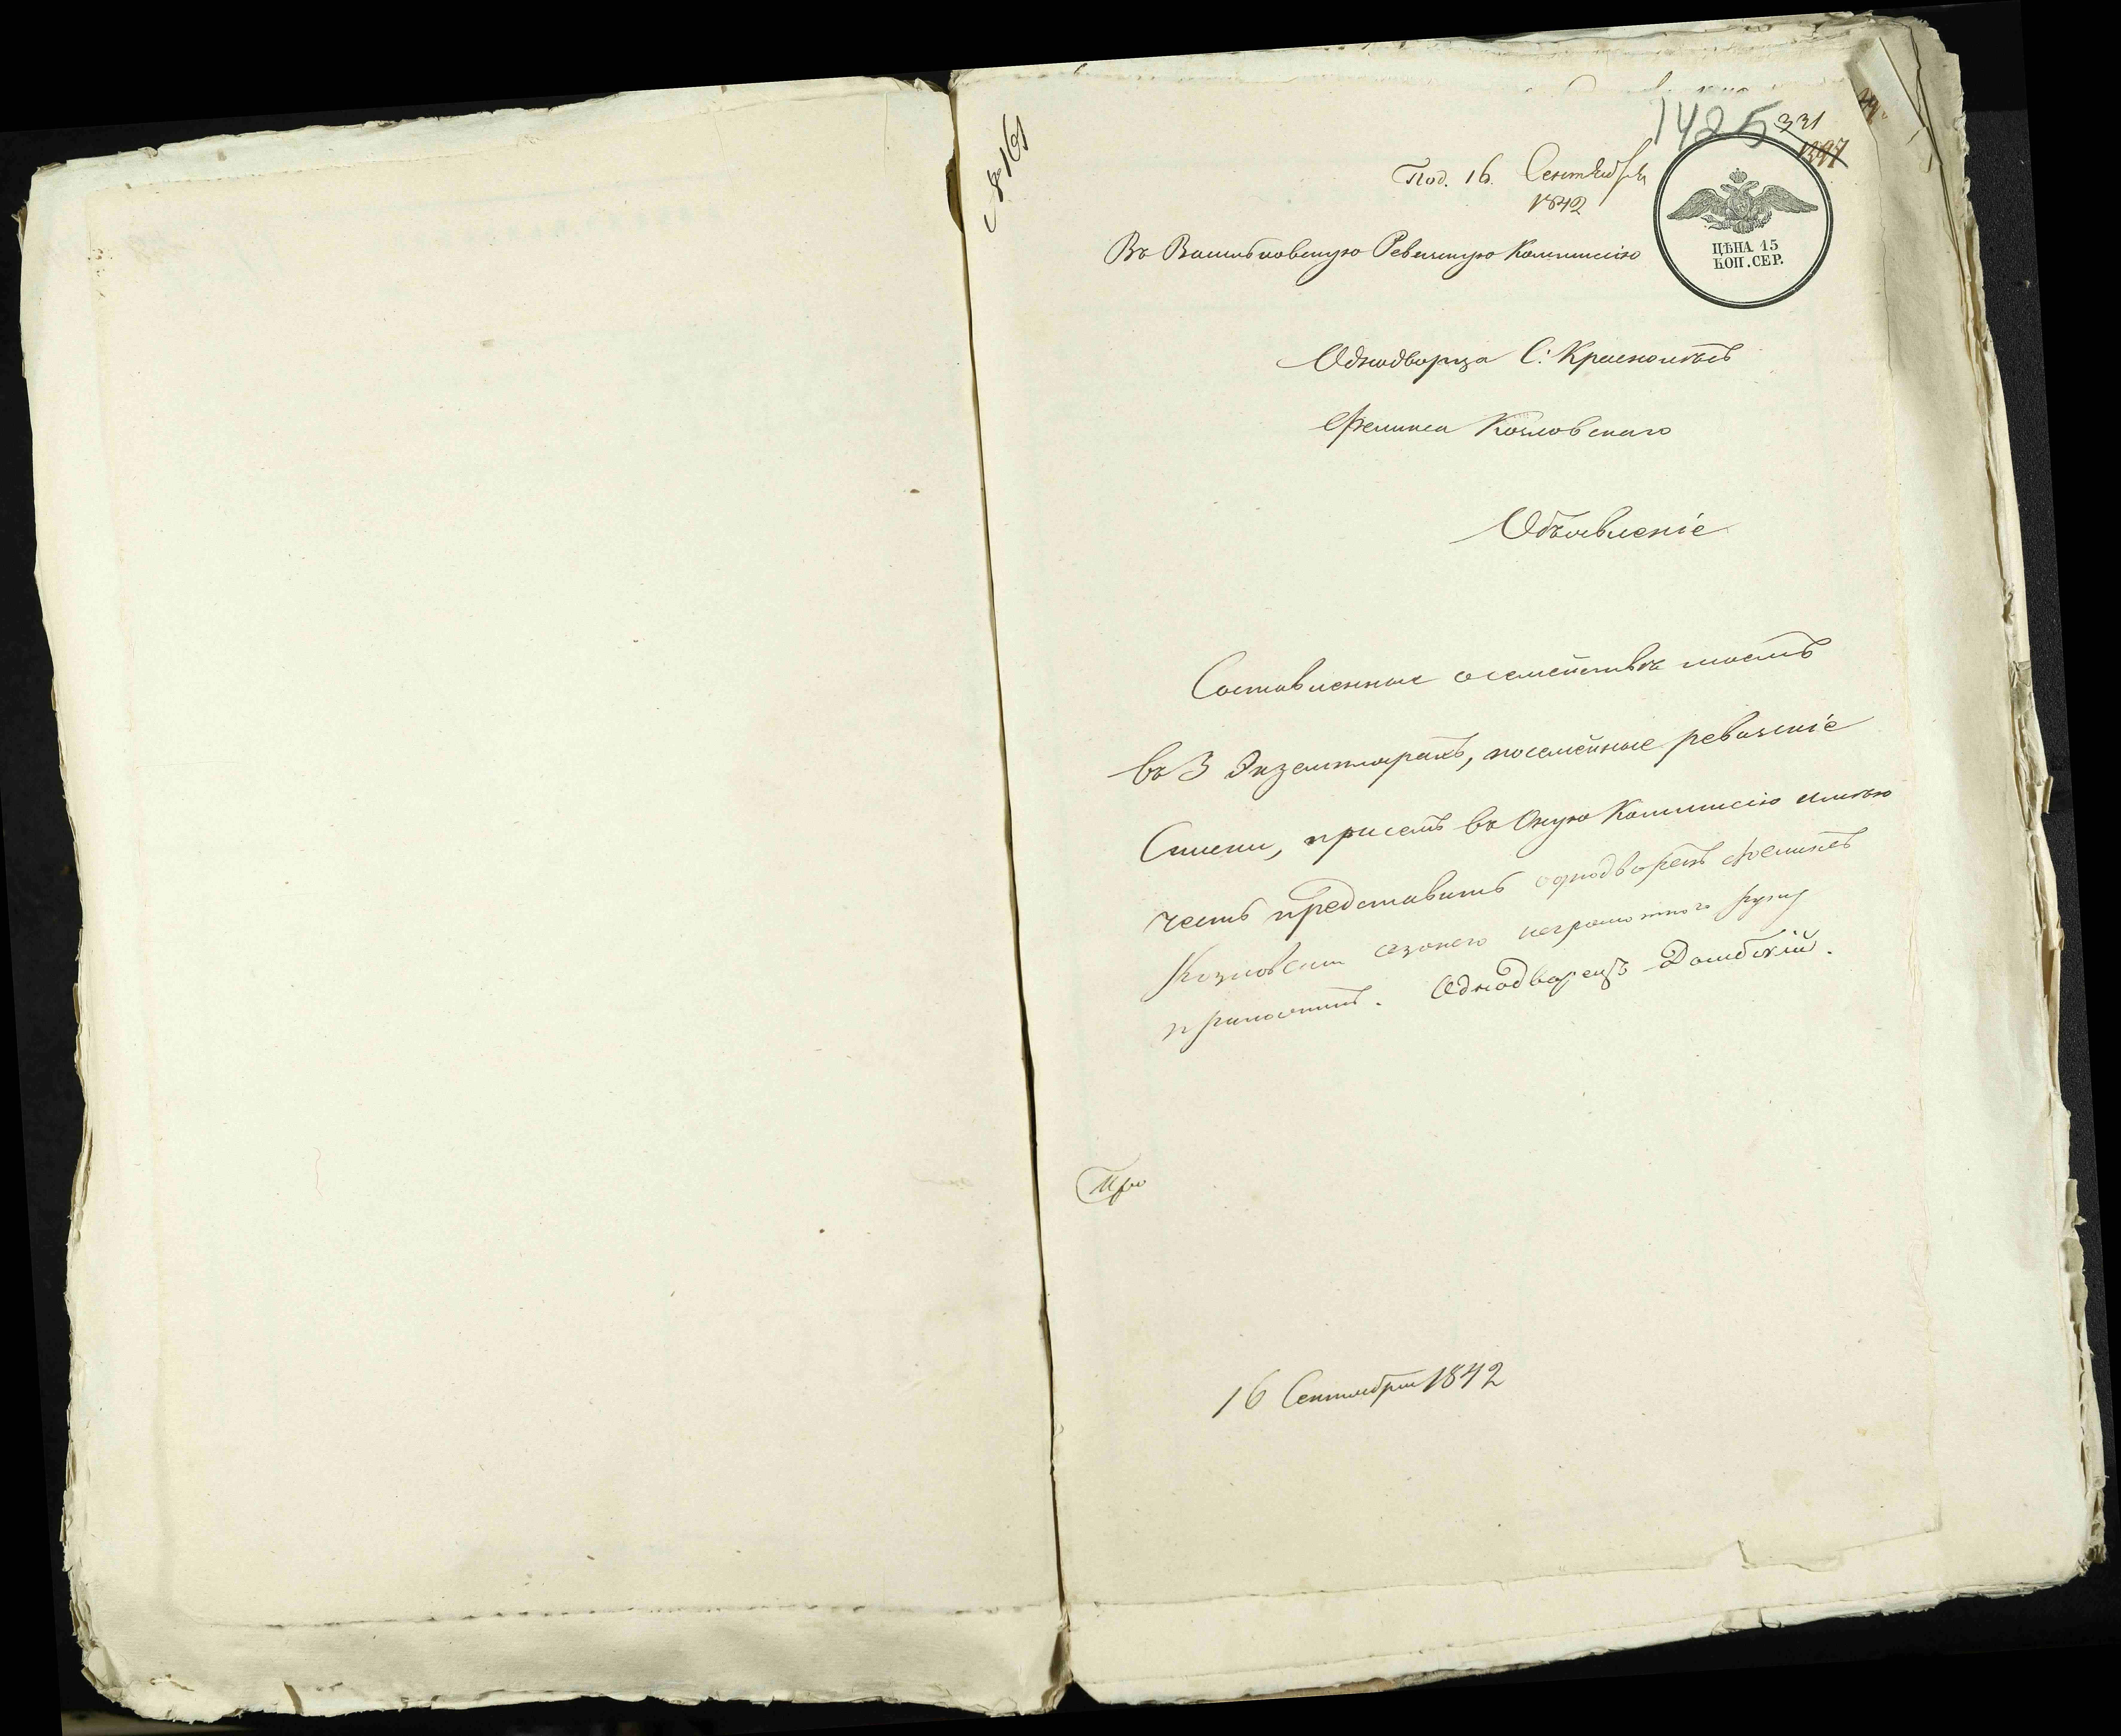 № 161
1425 331
1397
Под. 16. Сентября
1842
ЦѢНА 15
КОП. СЕР.
Въ Васильковскую Ревизскую Коммисію
Однодворца С: Краснолѣсъ
Феликса Козловскаго
Объявленіе
Составленные осемействѣ моемъ
въ 3 Экземплярахъ, посемейные ревизскіе
Списки, присемъ въ Оную Коммисію имѣю
честь представить однодворецъ Феликсъ
Козловски азанего неграмотного руку
приложилъ. Однодворецъ Домбскій.
16 Сентября 1842